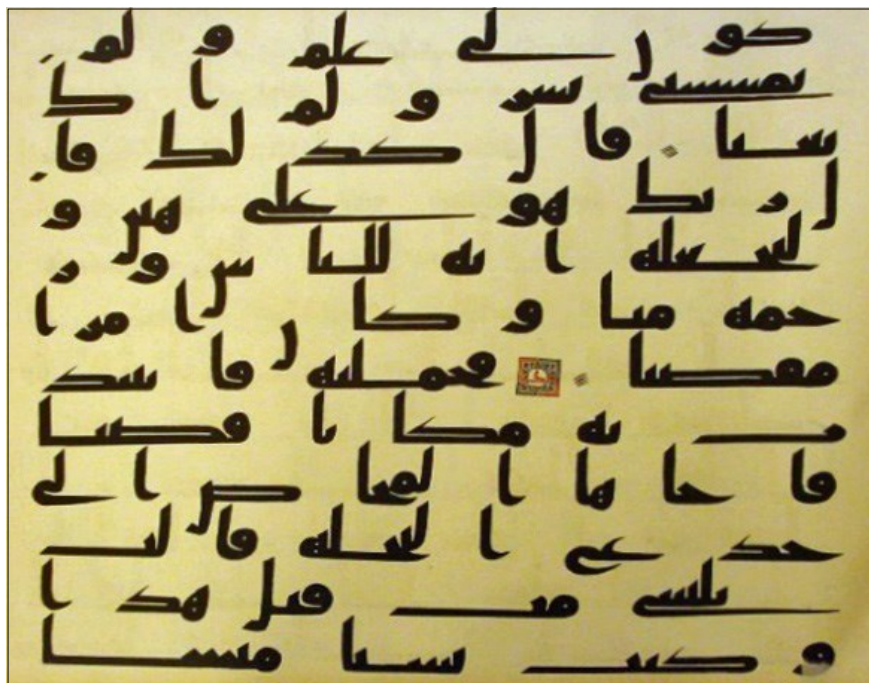 كون لى غلم ولم
يمسسنى بشر ولم اك
بغيا قال كذلك قا
ل ربك هو على هين و
لنجعله اية للناس ور
حمة منا وكان امرا
مقضيا فحملته فانتبذ
ت به مكانا قصيا
فاجاها المخاض الى
جذع النخلة قالت
يليتنى مت قبل هذا
وكنت نسيا منسيا